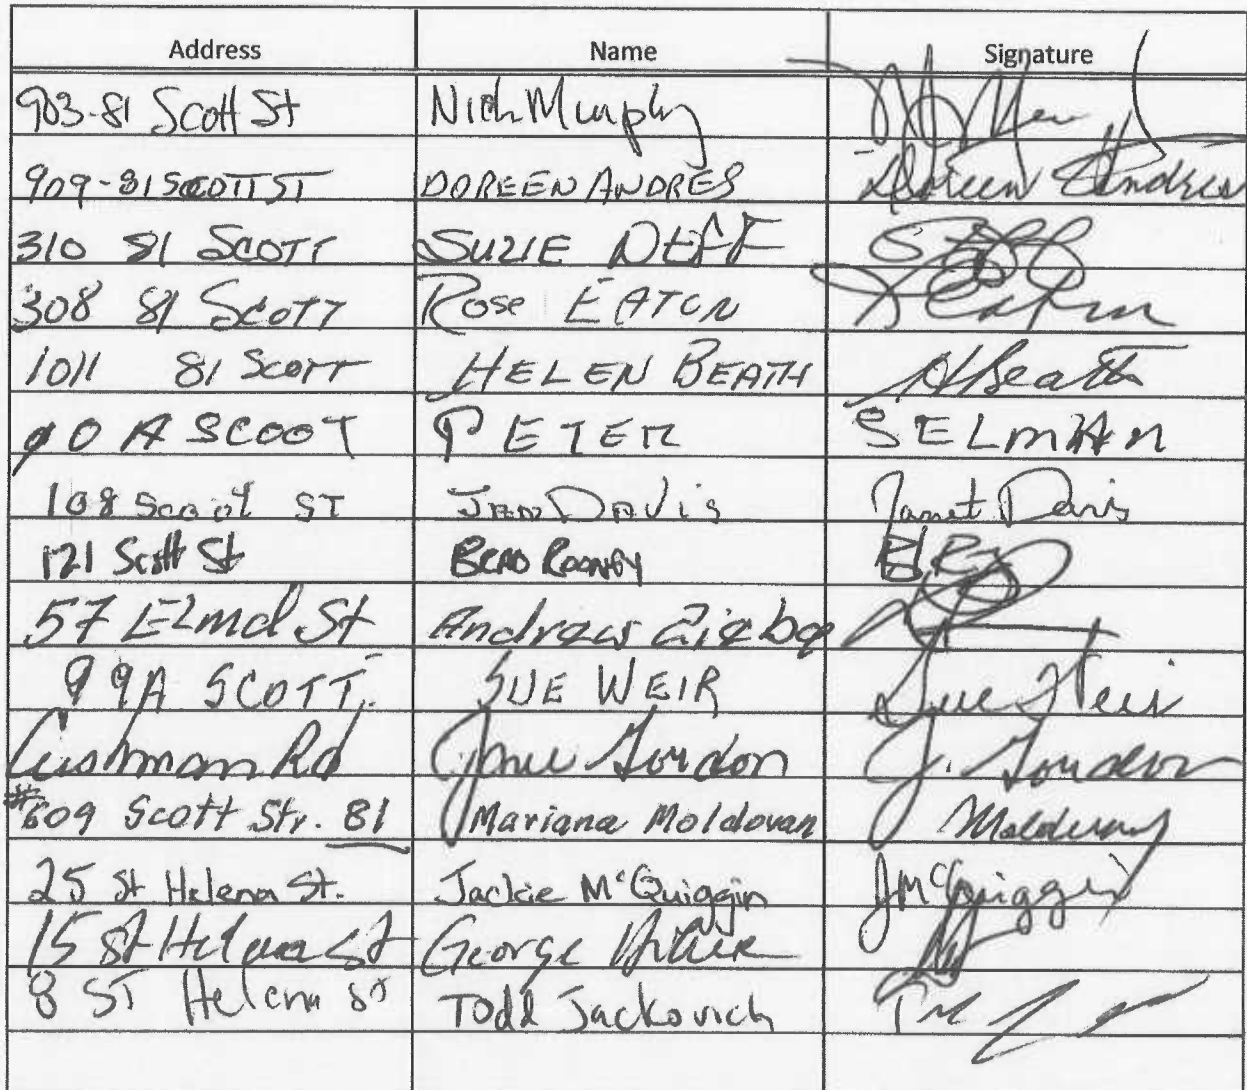 Address Name Signature
903-81 Scott St Nick Murphy
909-81 SCOTT ST DOREEN ANDRES Doreen Andres
310 81 SCOTT SUZIE NEFF
308 81 SCOTT Rose EATON Eaton
1011 81 SCOTT HELEN BEATH HBeath
90 A SCOOT PETER SELMAN
108 Scoot ST JAN DAVIS Janet Davis
121 Scott St BRAD ROONEY
57 St Andrew
99A SCOTT. SUE WEIR Sue Weir
Cushman Rd Gordon J. Gordon
#609 Scott Str. 81 Mariana Moldovan Moldovan
25 St Helena St. Jackie McQuiggin JMcQuiggin
15 St Helena St George
8 ST Helena ST Todd Jackovich